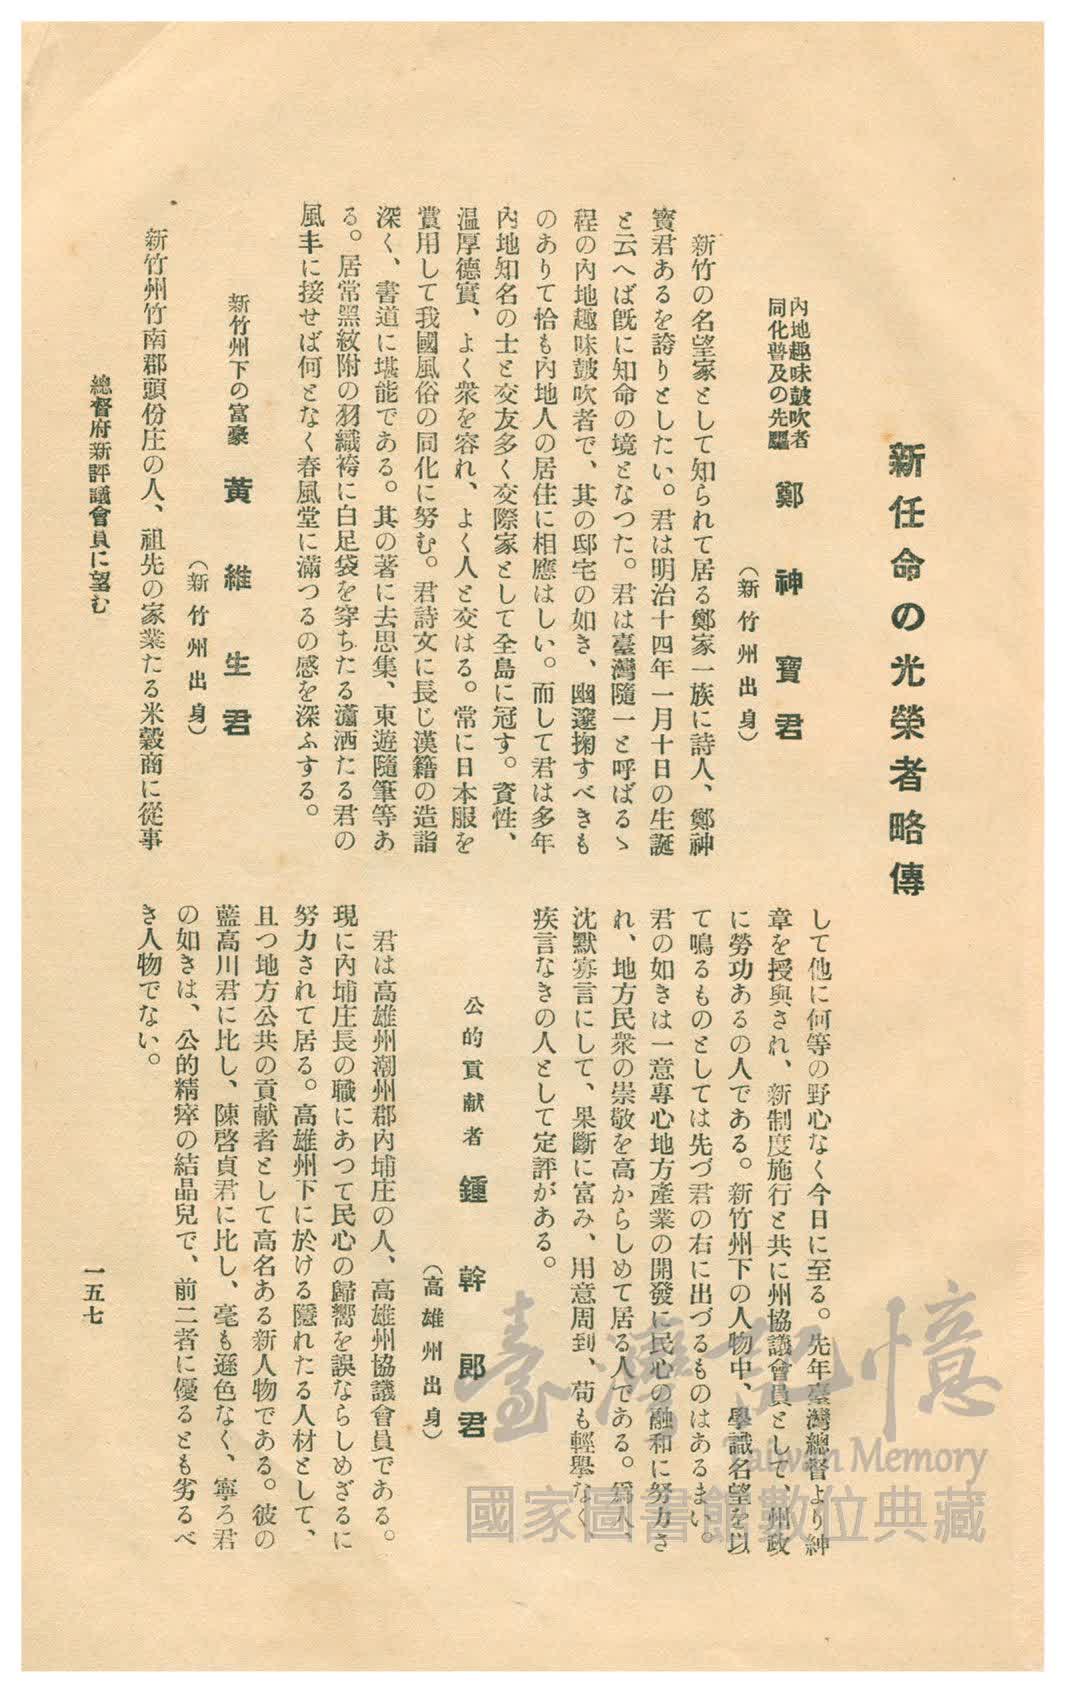 新任命の光榮者略傳
內地趣味皷吹者
同化普及の先驅
鄭神寶君
（新竹州出身）
新竹の名望家として知られて居る鄭家一族に詩人、鄭神
寳君あるを誇りとしたい。君は明治十四年一月十日の生誕
と云へば旣に知命の境となつた。君は臺灣隨一と呼ばるゝ
程の內地趣味皷吹者で、其の邸宅の如き、幽邃掬すべきも
のありて恰も內地人の居住に相應はしい。而して君は多年
內地知名の士と交友多く交際家として全島に冠す。資性、
温厚德實、よく衆を容れ、よく人と交はる。常に日本服を
賞用して我國風俗の同化に努む。君詩文に長じ漢籍の造詣
深く、書道に堪能である。其の著に去思集、東遊隨筆等あ
る。居常黑紋附の羽織袴に白足袋を穿ちたる瀟洒たる君の
風丰に接せば何となく春風堂に滿つるの感を深ふする。
新竹州下の富豪
黃維生君
（新竹州出身）
新竹州竹南郡頭份庄の人、祖先の家業たる米穀商に從事
して他に何等の野心なく今日に至る。先年臺灣總督より紳
章を授與され、新制度施行と共に州協議會員として、州政
に勞功あるの人である。新竹州下の人物中、學識名望を以
て鳴るものとしては先づ君の右に出づるものはあるまい。
君の如きは一意專心地方產業の開發に民心の融和に努力さ
れ、地方民衆の崇敬を高からしめて居る人である。爲人、
沈默寡言にして、果斷に富み、用意周到、苟も輕擧なく、
疾言なきの人として定評がある。
公的貢献者
鍾幹郎君
（高雄州出身）
君は高雄州潮州郡內埔庄の人、高雄州協議會員である。
現に內埔庄長の職にあつて民心の歸嚮を誤ならしめざるに
努力されて居る。高雄州下に於ける隱れたる人材として、
且つ地方公共の貢献者として高名ある新人物である。彼の
藍高川君に比し、陳啓貞君に比し、毫も遜色なく、寧ろ君
の如きは、公的精瘁の結晶兒で、前二者に優るとも劣るべ
き人物でない。
總督府新評議會員に望む
一五七
臺灣記憶
Taiwan Memory
國家圖書館數位典藏